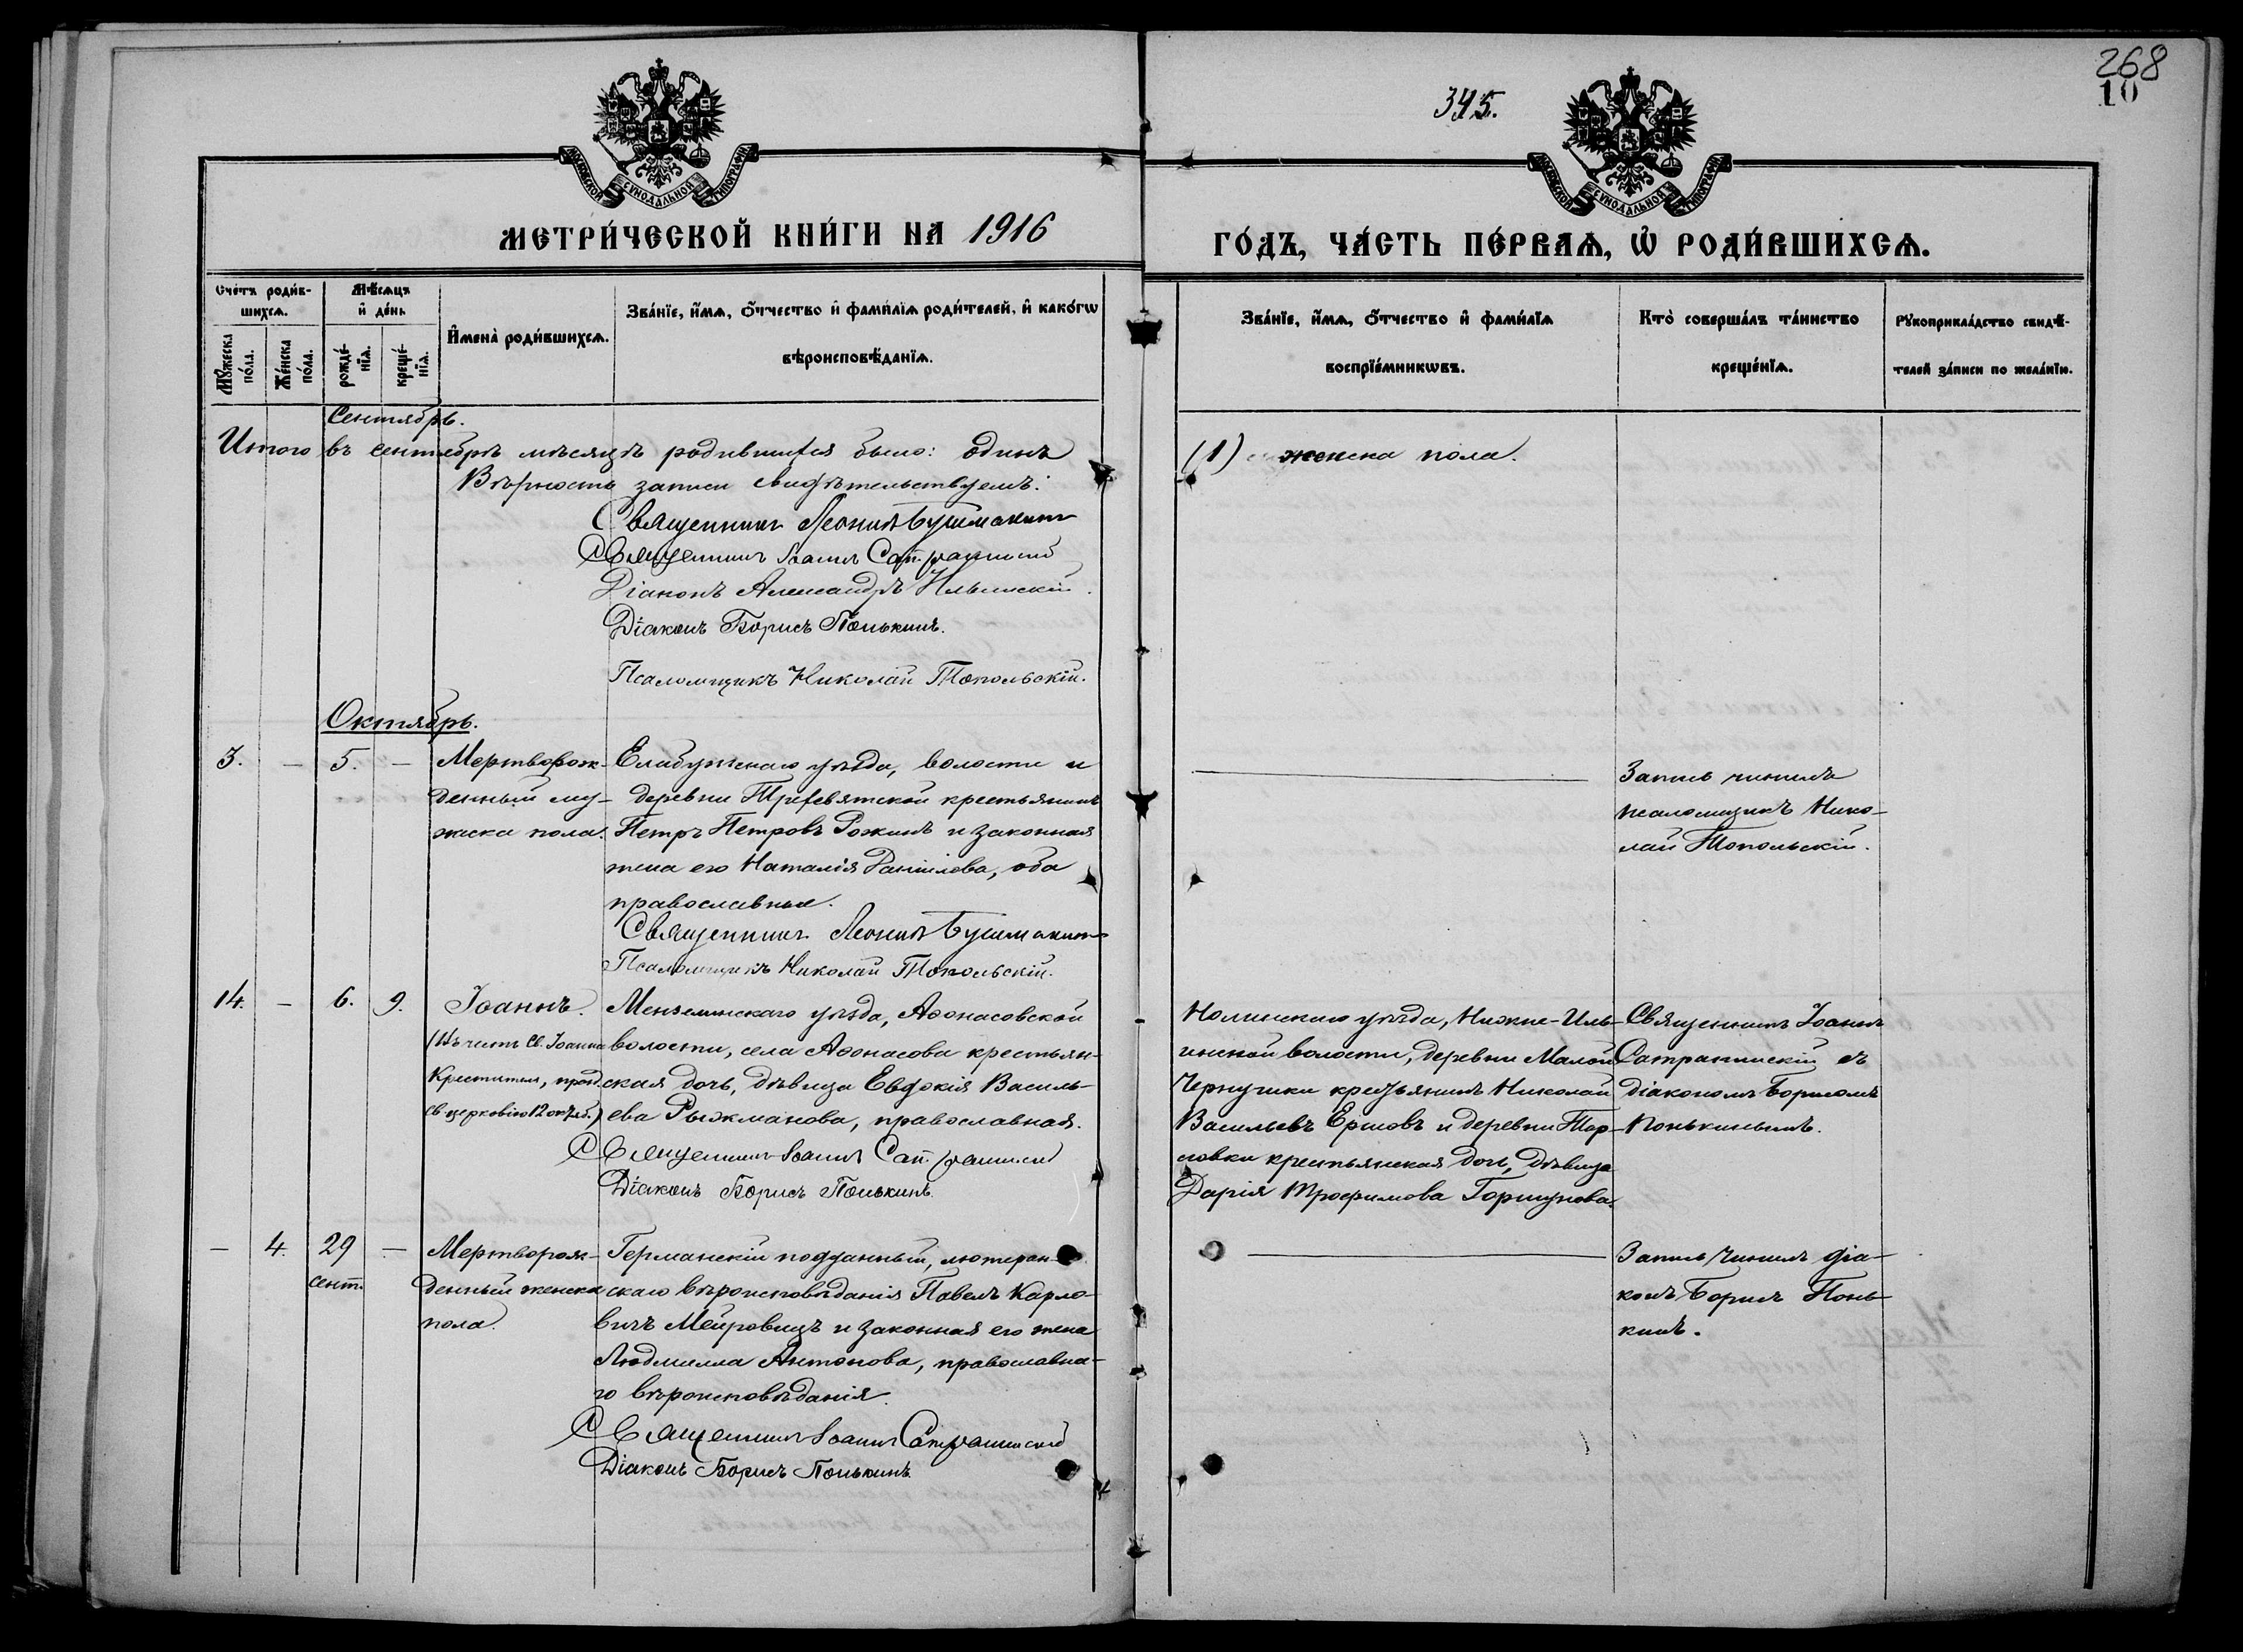 268
10
345.
МОСКОВСКОЙ СѴНОДАЛЬНОЙ ТИПОГРАФІИ
МОСКОВСКОЙ СѴНОДАЛЬНОЙ ТИПОГРАФІИ
МЕТРИ́ЧЕСКОЙ КНИ́ГИ НА 1916
ГО́ДЪ, ЧА́СТЬ ПЕ́РВАѦ, Ѡ҆ РОДИ́ВШИХСѦ.
Сче́тъ роди́в-
шихсѧ.
Мꙋ́жеска
по́ла.
Же́нска
по́ла.
Мѣ́сѧцъ
и҆ де́нь
рожде́-
нїѧ.
креще́-
нїѧ.
И҆мена̀ роди́вшихсѧ.
Зва́нїе, и҆́мѧ, ѻ҆́тчество и҆ фами́лїѧ роди́телей, и҆ како́гѡ
вѣроисповѣ́данїѧ.
Зва́нїе, и҆́мѧ, ѻ҆́тчество и҆ фами́лїѧ
воспрїе́мникѡвъ.
Кто̀ соверша́лъ та́инство
креще́нїѧ.
Рꙋкоприкла́дство свидѣ́-
телей за́писи по жела́нїю.
Сентябрь.
Итого въ сентябрѣ мѣсяцѣ родившихся было: одинъ
(1) женска пола.
Вѣрность записи свидѣтельствуемъ:
Священникъ Леонидъ Бушмакинъ
Священникъ Іоаннъ Сатрапинскій
Діаконъ Александръ Ильинскій.
Діаконъ Борисъ Понькинъ.
Псаломщикъ Николай Топольскій.
Октябрь.
3. — 5. — Мертворож- Елабужскаго уѣзда, волости и
денный му- деревни Трехсвятской крестьянинъ
жеска пола. Петръ Петровъ Рожинъ и законная
жена его Наталія Даніилова, оба
православные.
Священникъ Леонидъ Бушмакинъ
Псаломщикъ Николай Топольскій.
Запись чинилъ
псаломщикъ Нико-
лай Топольскій.
14. — 6. 9. Іоаннъ. Мензелинскаго уѣзда, Аѳонасовской
(Въ честь Св. Іоанна волости, села Аѳонасова крестьян-
Крестителя, празд. ская дочь, дѣвица Евдокія Василь-
св. церковію 12 октяб.) ева Рыжманова, православная.
Священникъ Іоаннъ Сатрапинскій
Діаконъ Борисъ Понькинъ.
Нолинскаго уѣзда, Нижне-Иль-
инской волости, деревни Малой
Чернушки крестьянинъ Николай
Васильевъ Ершовъ и деревни Тор-
ловки крестьянская дочь, дѣвица
Дарія Трофимова Горшунова.
Священникъ Іоаннъ
Сатрапинскій съ
діакономъ Борисомъ
Понькинымъ.
— 4. 29 — Мертворож- Германскій подданный, лютеран-
сент. денный женска скаго вѣроисповѣданія Павелъ Карло-
пола. вичъ Мейровицъ и законная его жена
Людмилла Антонова, православна-
го вѣроисповѣданія.
Священникъ Іоаннъ Сатрапинскій
Діаконъ Борисъ Понькинъ
Запись чинилъ діа-
конъ Борисъ Понь-
кинъ.